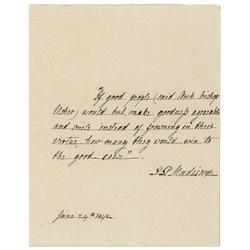 "If good people (said Arch bishop
Usher) would but make goodness agreeable
and smile instead of frowning in their
virtue, how many they would win to
the good cause"
D. P. Madison
June 24th 1842.